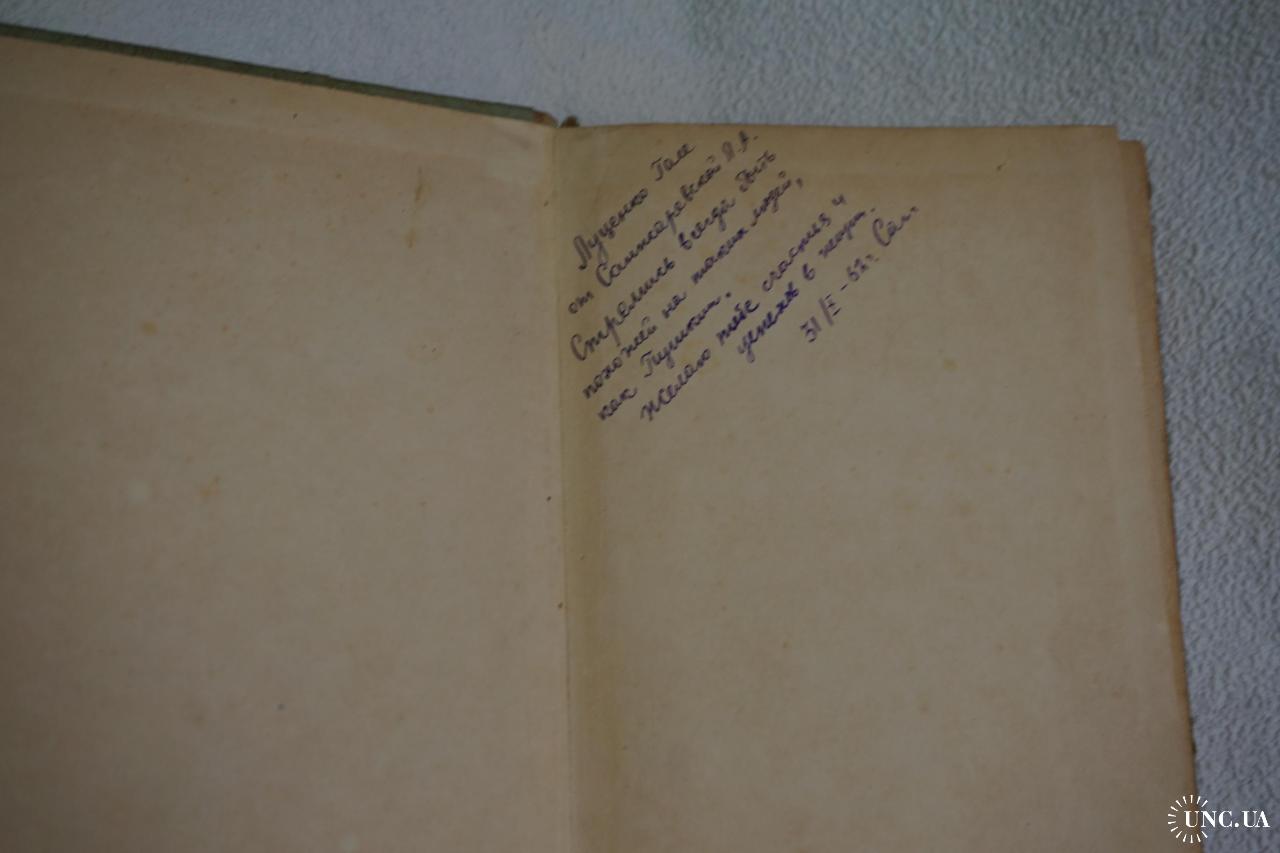 Луценко Гале
от Санжаревской Я.А.
Стремись всегда быть
похожей на таких людей,
как Пушкин.
Желаю тебе счастия и
успехов в жизн.
31/X - 62г. Сан.
UNC.UA